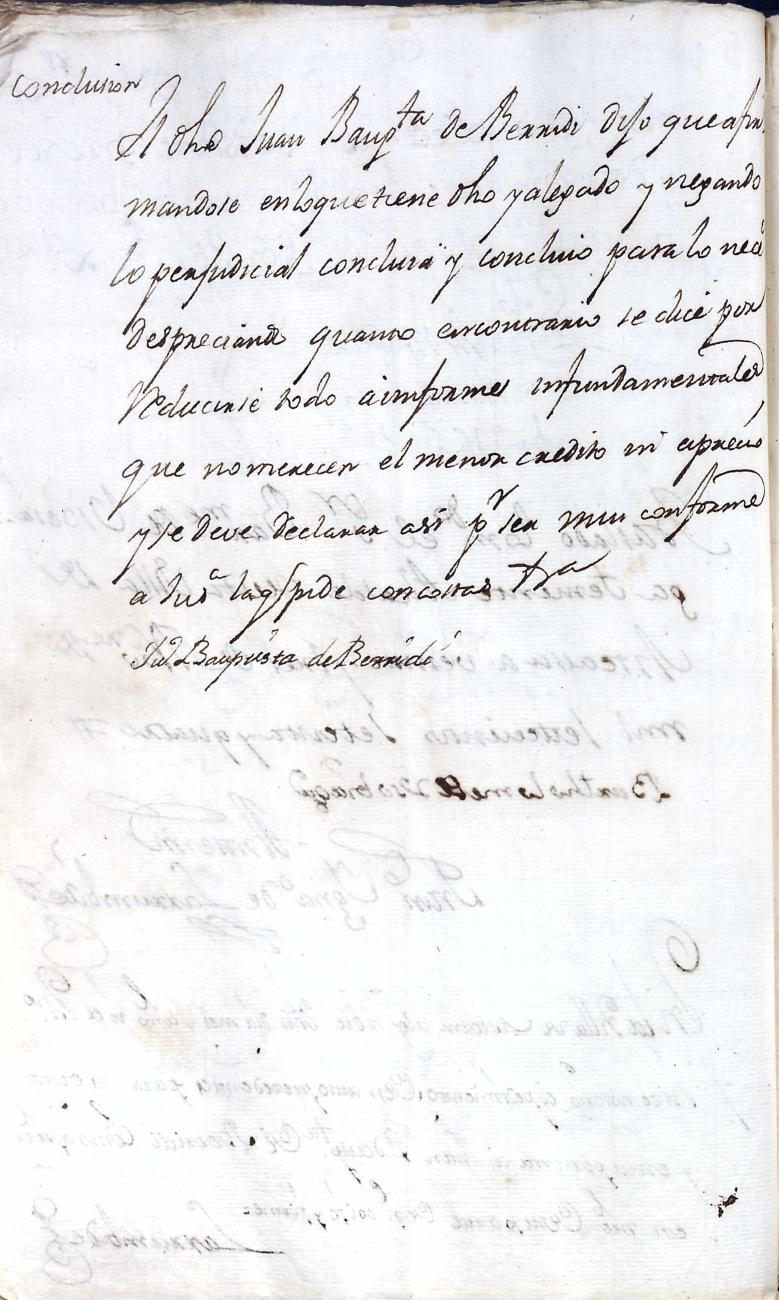 Conclusion
El dho Juan Baupta de Berridi dijo que afir
mandose en lo que tiene dho y alegado y negando
lo perjudicial concluia y concluio para lo nece
despreciando quanto encontrario se dice por
Reducirse todo a informes infundamentales
que no merecen el menor credito ni aprecio
y se deve declarar assi pr ser mui conforme
a Justa laq pide con costas &a
Jun Baupista de Berridi